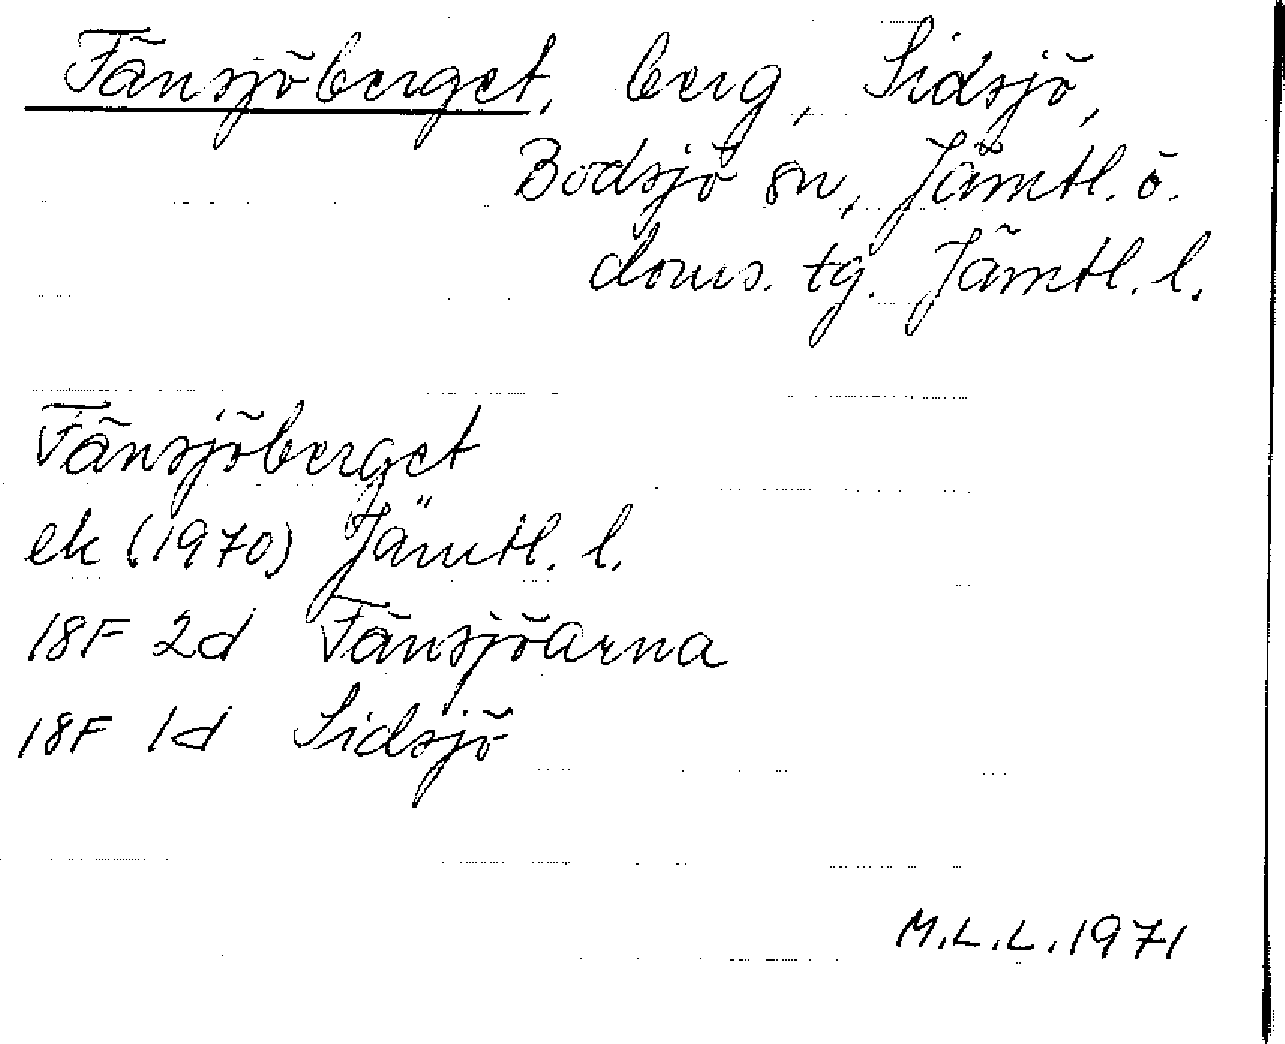 Fänsjöberget, berg, Sidsjö,
Bodsjö sn, Jämtl. ö.
doms. tg. Jämtl. l.
Fänsjöberget
ek (1970) Jämtl. l.
18F 2d Fänsjöarna
18F 1d Sidsjö
M.L.L. 1971